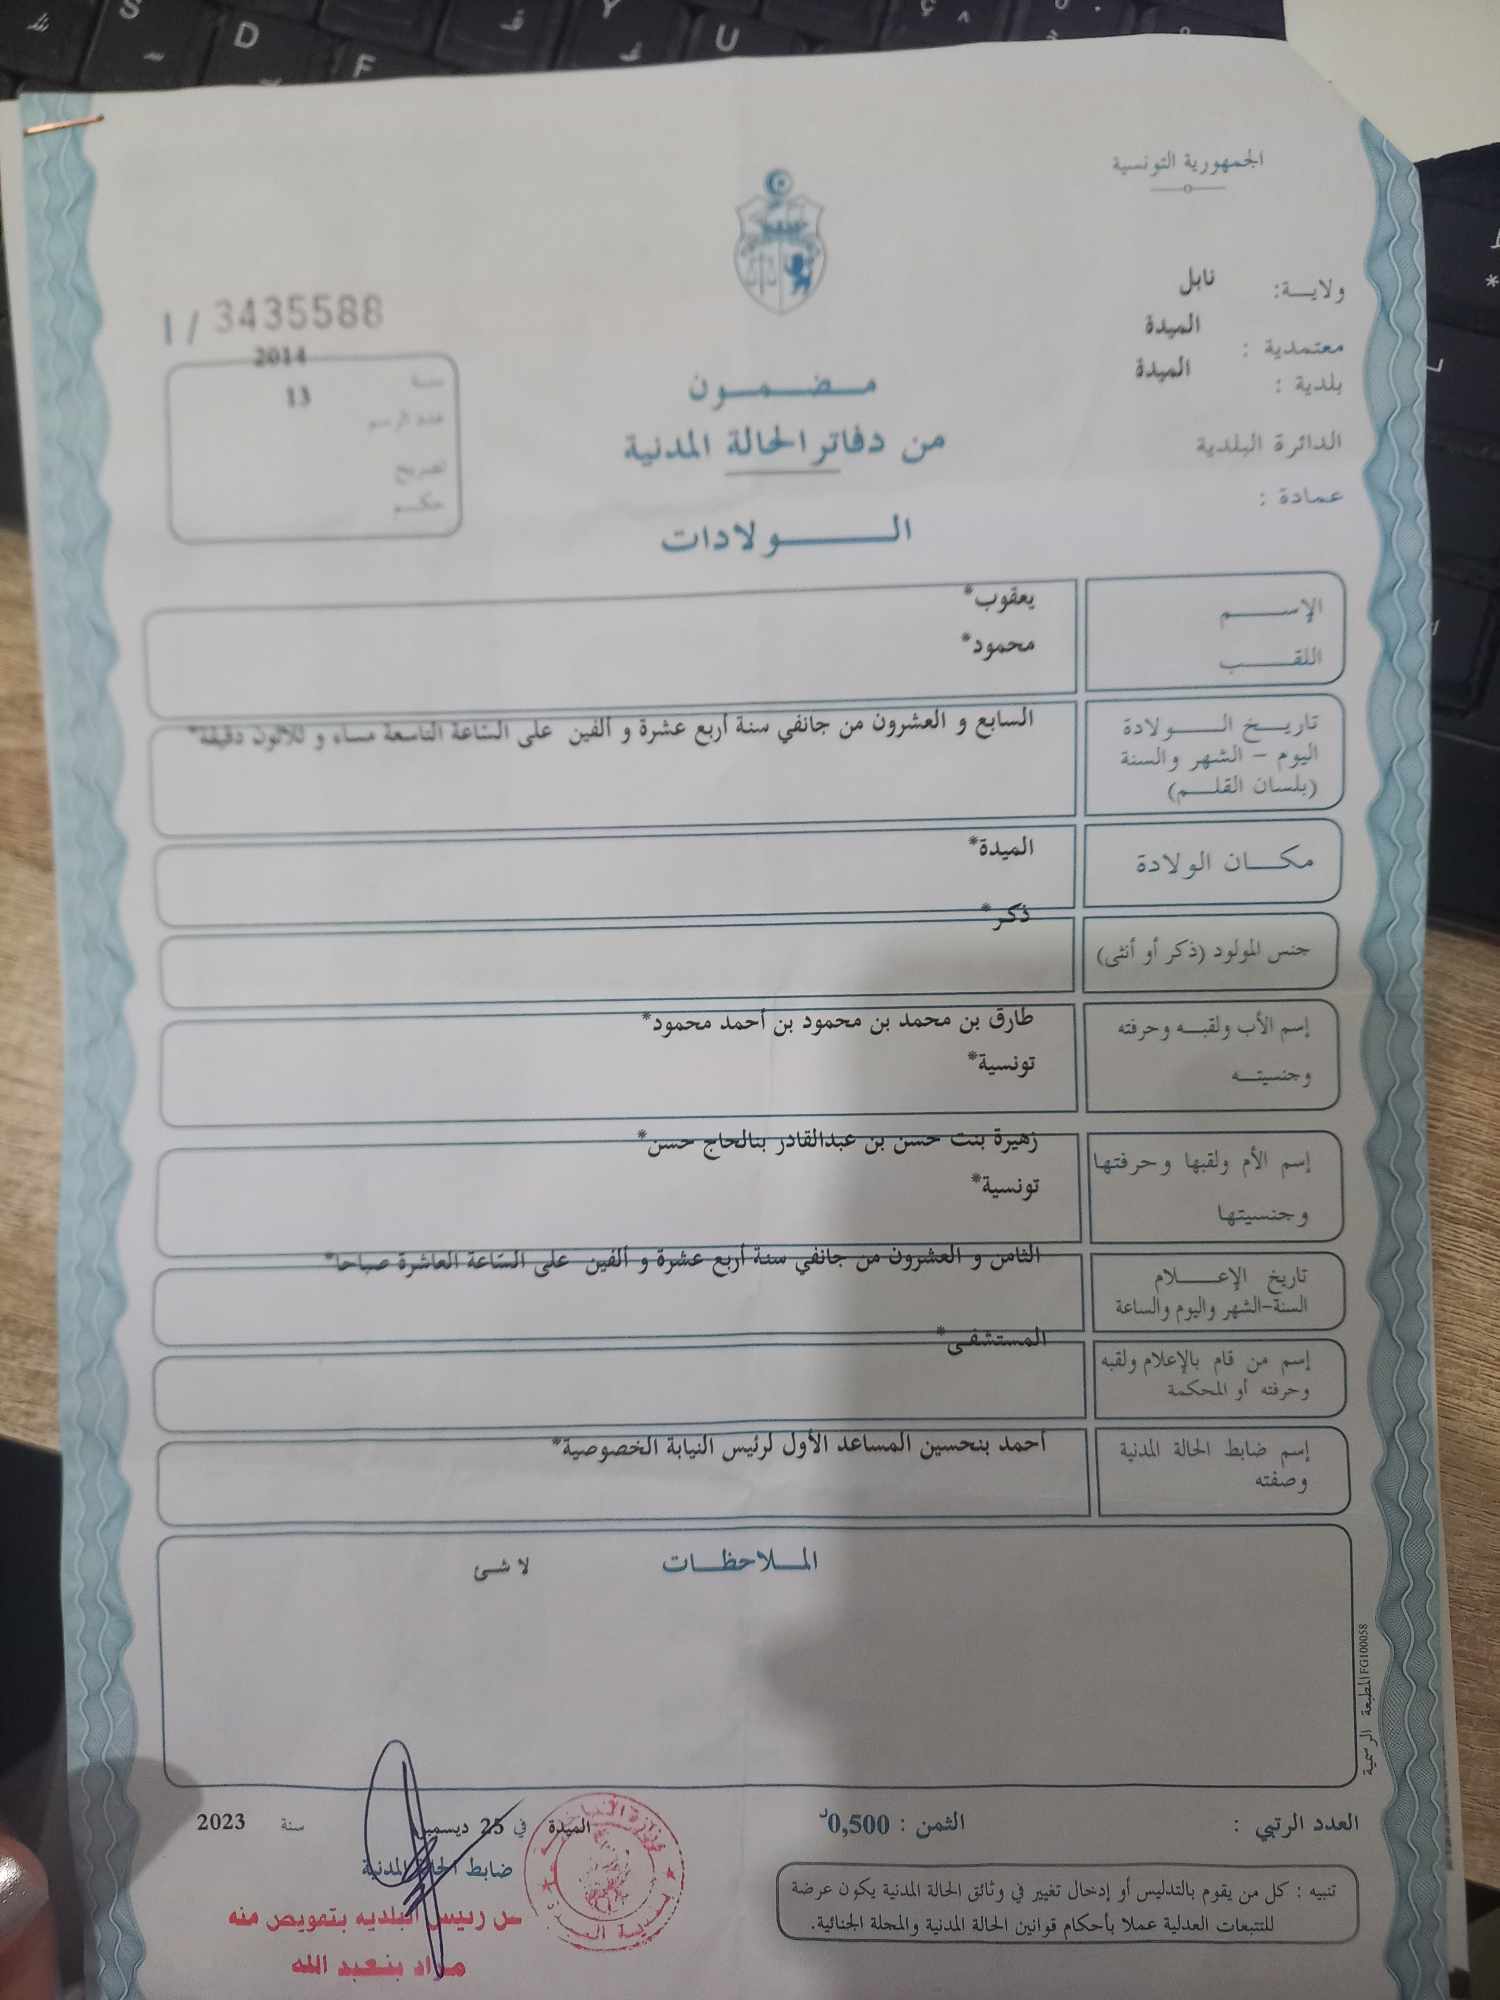 الجمهورية التونسية
ولايــة: نابل
معتمدية : الميدة
بلدية : الميدة
الدائرة البلدية
عمادة :
I / 3435588
سنة 2014
عدد الرسم 13
تصريح
حكم
مـضـمـون
من دفاتر الحالة المدنية
الـولادات
الإســم يعقوب*
اللقــب محمود*
تاريـخ الـولادة
اليوم - الشهر والسنة
(بلسان القلـم)
السابع و العشرون من جانفي سنة أربع عشرة و ألفين على السّاعة التاسعة مساء و ثلاثون دقيقة*
مكـان الولادة الميدة*
جنس المولود (ذكر أو أنثى) ذكر*
إسم الأب ولقبـه وحرفته طارق بن محمد بن محمود بن أحمد محمود*
وجنسيتـه تونسية*
إسم الأم ولقبها وحرفتها زهيرة بنت حسن بن عبدالقادر بنالحاج حسن*
وجنسيتها تونسية*
تاريخ الإعـلام الثامن و العشرون من جانفي سنة أربع عشرة و ألفين على السّاعة العاشرة صباحا*
السنة-الشهر واليوم والساعة
إسم من قام بالإعلام ولقبه المستشفى*
وحرفته أو المحكمة
إسم ضابط الحالة المدنية أحمد بنحسين المساعد الأول لرئيس النيابة الخصوصية*
وصفته
المـلاحظـات لا شئ
المطبعة الرسمية FG100058
العدد الرتبي : الثمن : 0,500د
الميدة في 25 ديسمبر سنة 2023
ضابط الحالة المدنية
رئيس البلدية بتفويض منه
مراد بنعبد الله
تنبيه : كل من يقوم بالتدليس أو إدخال تغيير في وثائق الحالة المدنية يكون عرضة
للتتبعات العدلية عملا بأحكام قوانين الحالة المدنية والمجلة الجنائية.
S
D
F
Y
U